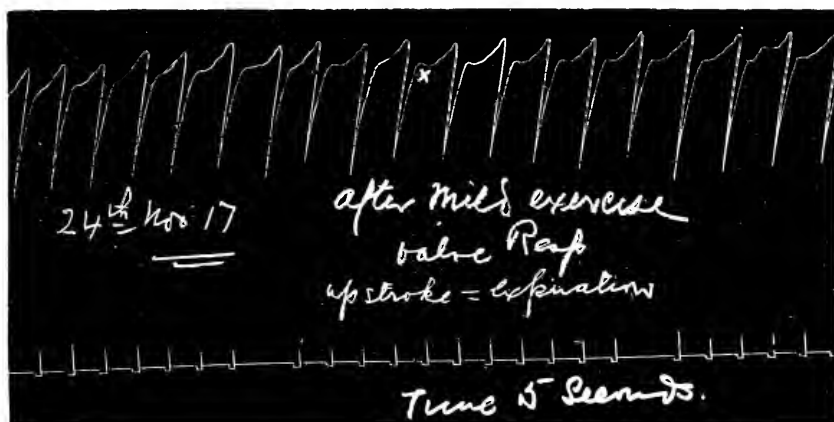 x
24th Nov 17
after mild exercise
valve Resp
upstroke = expiration
Time 5 Seconds.